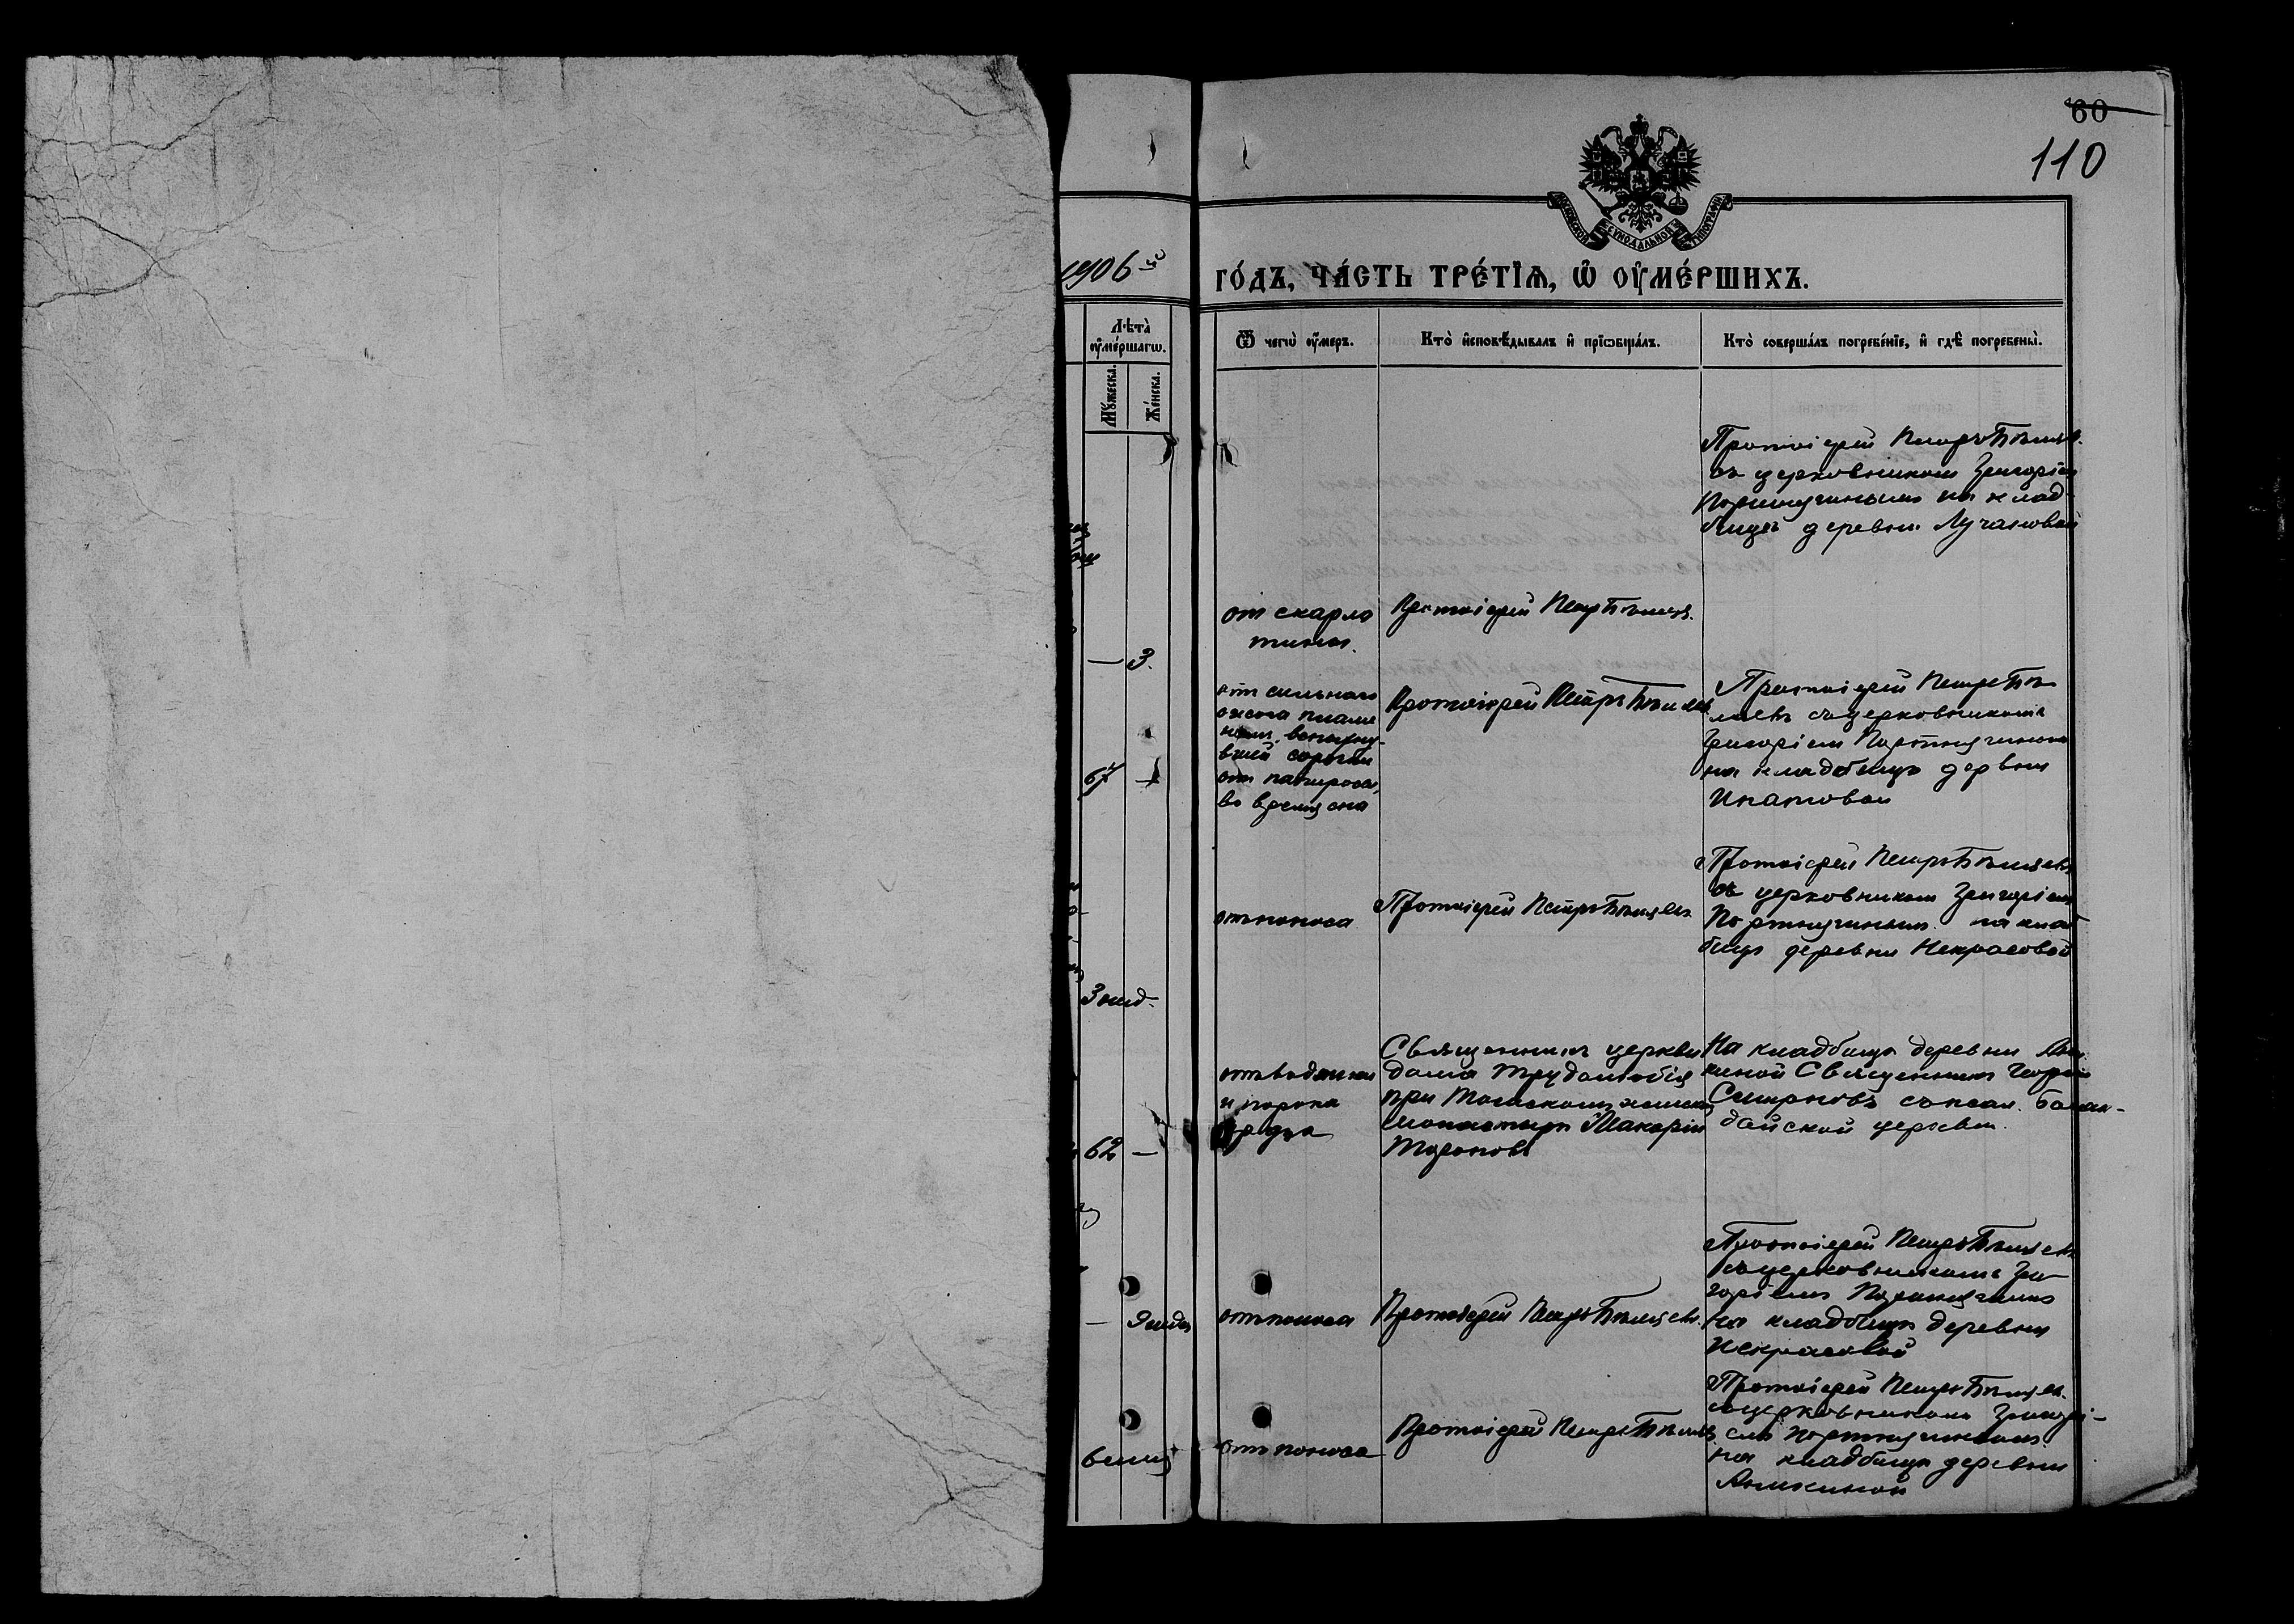 60
110
МОСКОВСКОЙ СѴНОДАЛЬНОЙ ТИПОГРАФІИ
1906 го́дъ, ча́сть тре́тїѧ, ѡ҆ оу҆ме́ршихъ.
Лѣ́та оу҆ме́ршагѡ.
Мꙋ́жеска.
Же́нска.
Ѿ чегѡ̀ оу҆́меръ.
Кто̀ и҆сповѣ́дывалъ и҆ прїѡбща́лъ.
Кто̀ соверша́лъ погребе́нїе, и҆ гдѣ̀ погребены̀.
Протоіерей Петръ Бѣляев
съ церковником Григоріем
Портнягинымъ на клад
бищѣ деревни Лучановой
— 3.
от скарла
тины.
Протоіерей Петръ Бѣляев.
67 —
отъ сильнаго
ожога пламе
нем, вспыхну-
вшей сорочки
от папиросы,
во время сна
Протоіерей Петръ Бѣляев
Протоіерей Петръ Бѣ
ляевъ съ церковникомъ
Григоріем Портнягиным
на кладбищѣ дервни
Ипатовой
3 нед.
отъ поноса
Протоіерей Петръ Бѣляевъ
Протоіерей Петръ Бѣляевъ
съ церковником Григоріем
Портнягиным на клад
бищѣ деревни Некрасовой
62 —
отъ водянки
и порока
сердца
Священникъ церкви
дома трудолюбія
при Томскомъ женском
монастырѣ Макарій
На кладбищѣ деревни Ани
киной Священникъ Георгій
Смирновъ съ псал. Баман-
дайской церкви.
— 9 нед.
отъ поноса
Протоіерей Петръ Бѣляевъ.
Протоіерей Петръ Бѣляевъ
съ церковникомъ Гри
горіемъ Портнягинымъ
на кладбищѣ деревни
Некрасовой
отъ поноса
Протоіерей Петръ Бѣляев
Протоіерей Петръ Бѣляев.
съ церковником Григорі-
емъ Портнягиным
на кладбищѣ деревни
Аникиной